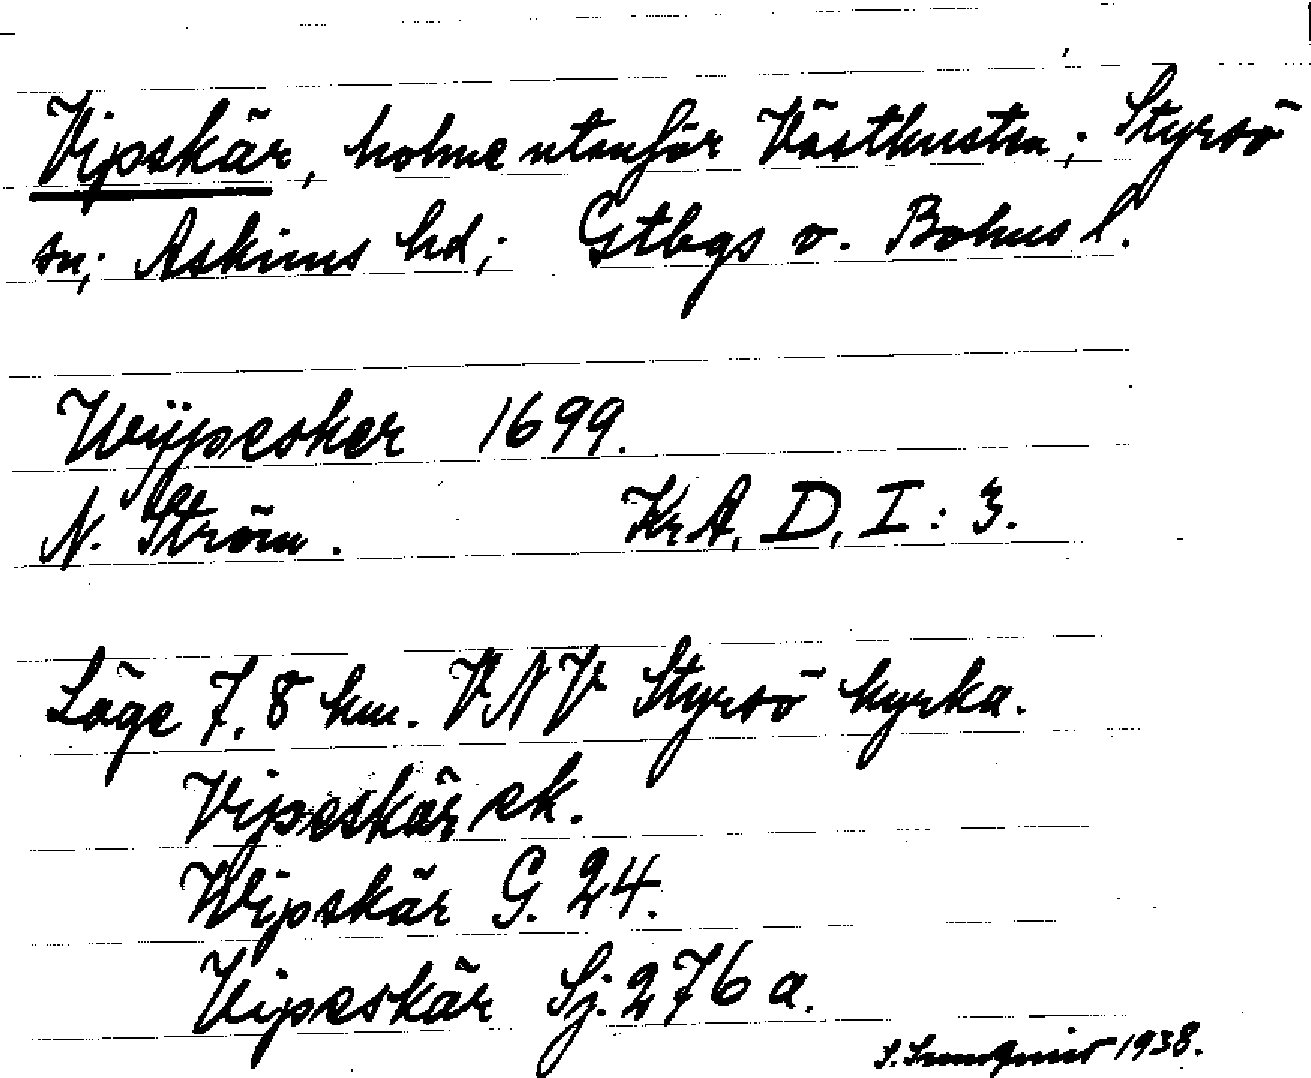 Vipskär, holme utanför Västkusten; Styrsö
sn; Askims hd; Gtbgs o. Bohus l.
Wijpesker 1699.
N. Ström. Kr.A, D, I: 3.
Läge 7,8 km. VNV Styrsö kyrka.
Vipeskär ek.
Wipskär G. 24.
Vipeskär Sj. 276 a.
S. 1938.